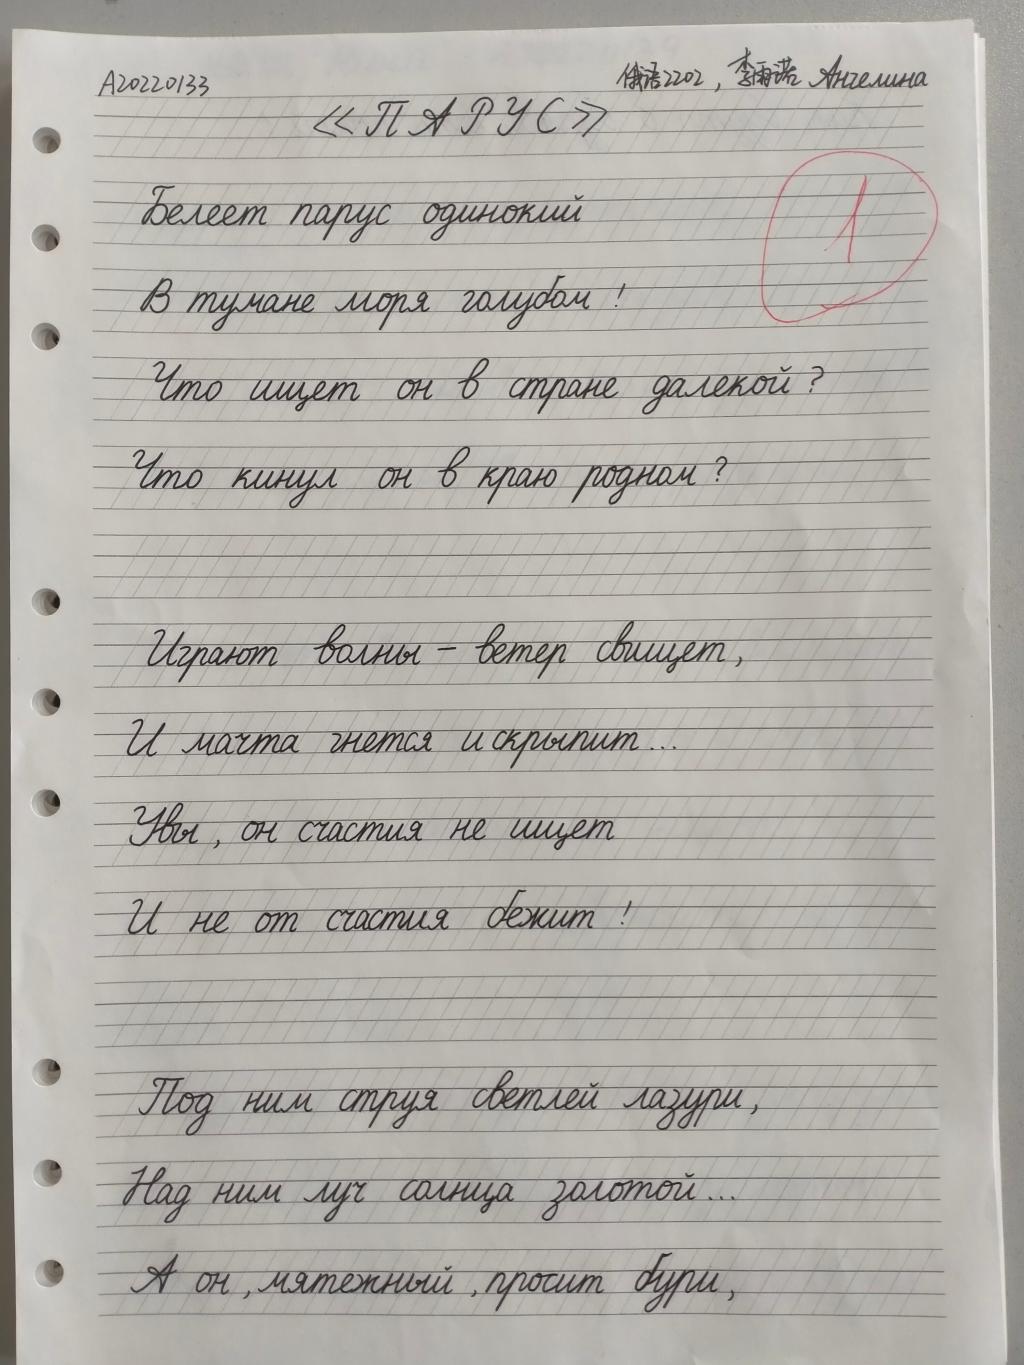 A20220133
俄语2202，李雨诺 Ангелина
《ПАРУС》
1
Белеет парус одинокий
В тумане моря голубом!
Что ищет он в стране далекой?
Что кинул он в краю родном?
Играют волны – ветер свищет,
И мачта гнется и скрыпит...
Увы, он счастия не ищет
И не от счастия бежит!
Под ним струя светлей лазури,
Над ним луч солнца золотой...
А он, мятежный, просит бури,